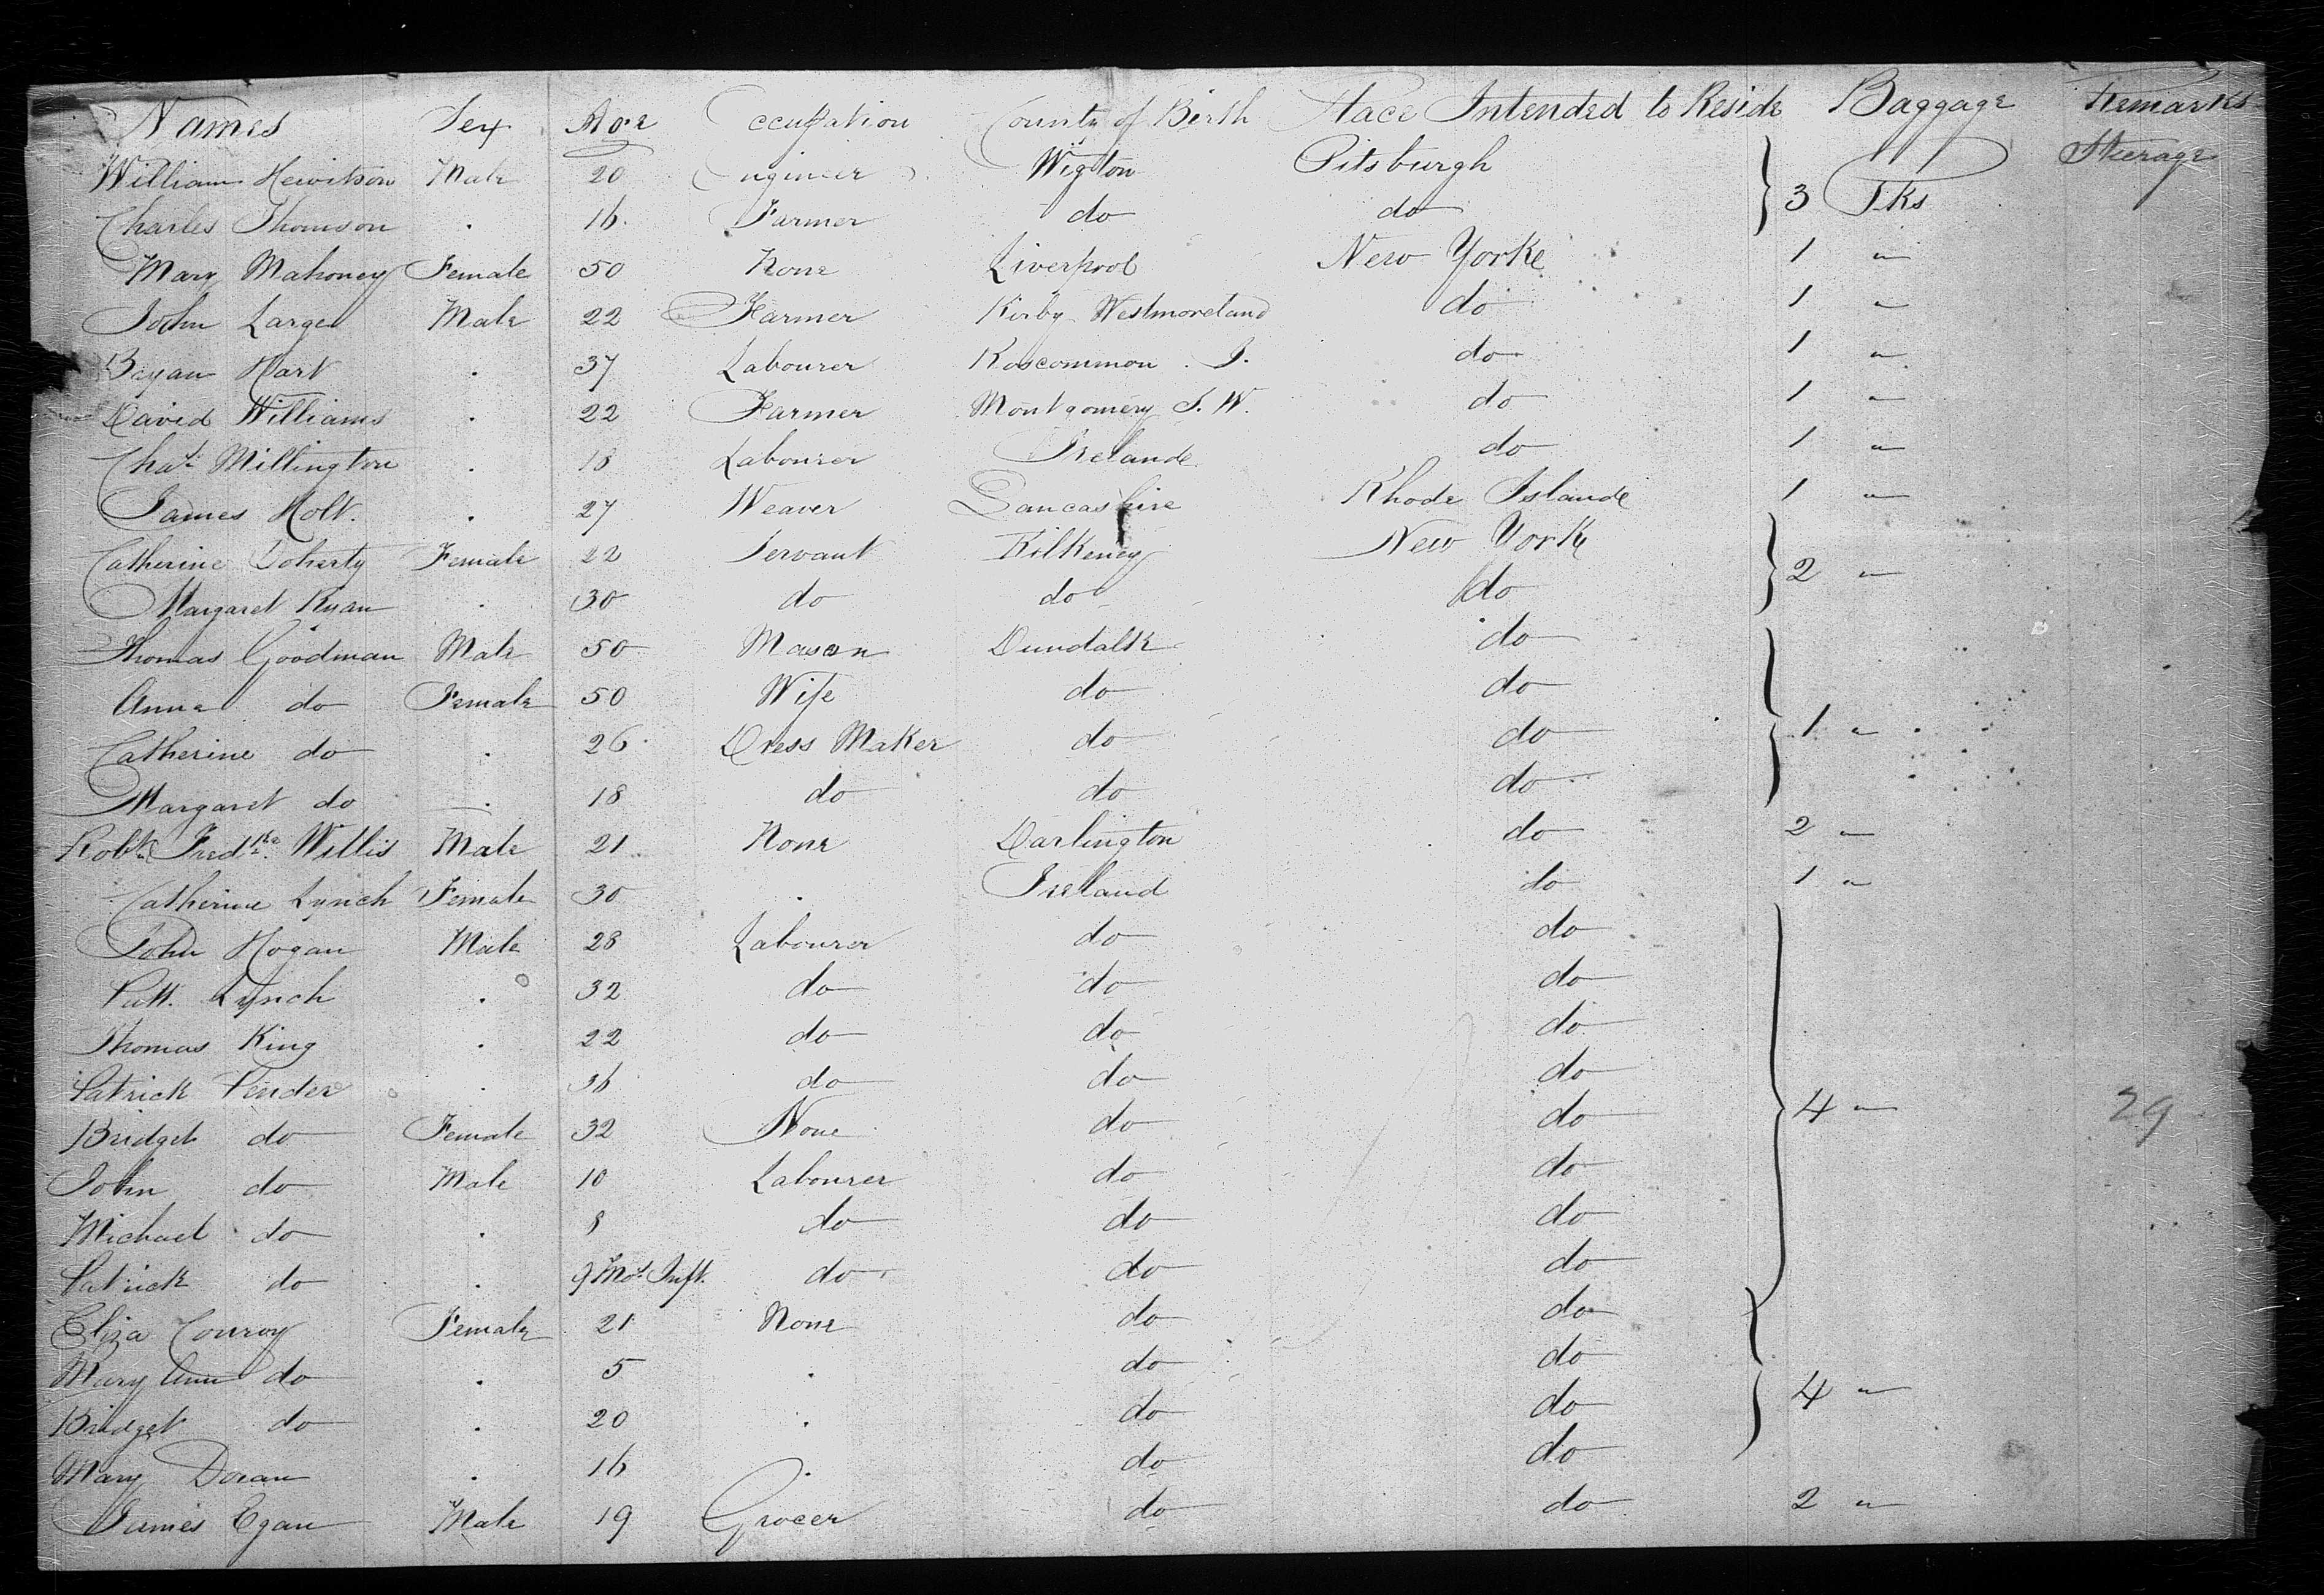 Names Sex Age Occupation County of Birth Place Intended to Reside Baggage Remarks
William Hewitson Male 20 Engineer Wigton Pitsburgh Steerage
Charles Thomson . 16 Farmer do do 3 Tks
Mary Mahoney Female 50 None Liverpool New Yorke 1 "
John Large Male 22 Farmer Kirby Westmoreland do 1 "
Bryan Hart . 37 Labourer Roscommon . I. do 1 "
David Williams . 22 Farmer Montgomery S. W. do 1 "
Chas. Millington . 18 Labourer Irelande do 1 "
James Holt. . 27 Weaver Lancashire Rhode Islande 1 "
Catherine Doherty Female 22 Servant Kilkeney New York
Margaret Ryan . 30 do do do 2 "
Thomas Goodman Male 50 Mason Dundalk do
Anna do Female 50 Wife do do
Catherine do . 26 Dress Maker do do 1 "
Margaret do . 18 do do do
Robt. Fredk. Willis Male 21 None Darlington do 2 "
Catherine Lynch Female 30 . Ireland do 1 "
John Hogan Male 28 Labourer do do
Patt. Lynch . 32 do do do
Thomas King . 22 do do do
Patrick Pender . 36 do do do
Bridget do Female 32 None do do 4 " 29
John do Male 10 Labourer do do
Michael do . 8 do do do
Patrick do . 9 Mos. Inft. do do do
Eliza Conroy Female 21 None do do
Mary Ann do . 5 . do do
Bridget do . 20 . do do 4 "
Mary Doran . 16 . do do
James Egan Male 19 Grocer do do 2 "